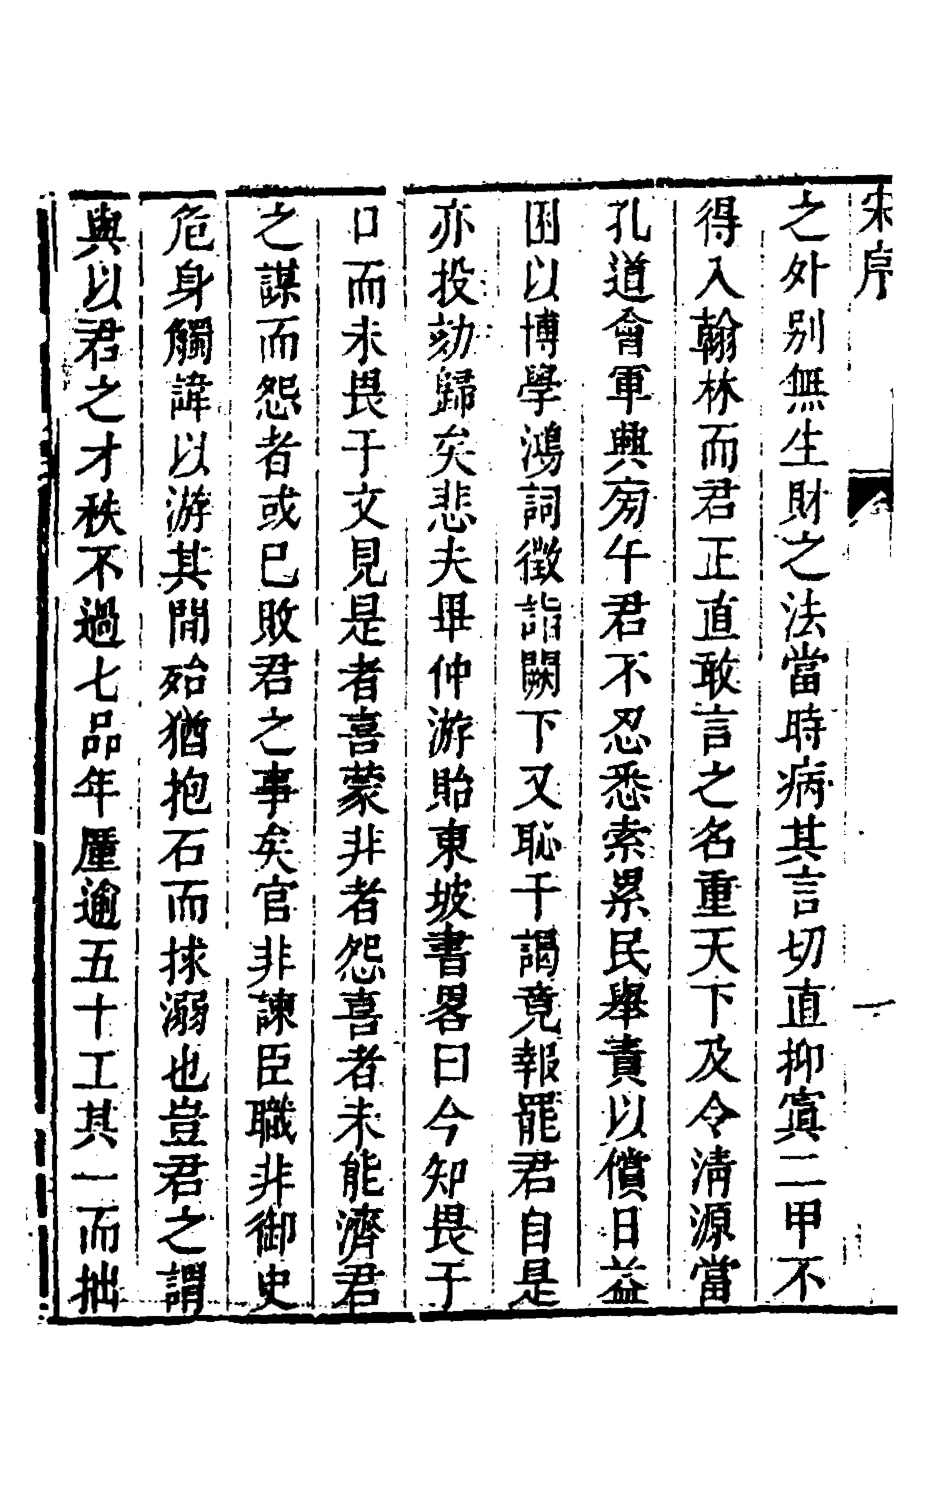 宋序
之外别無生財之法當時病其言切直抑寘二甲不
得入翰林而君正直敢言之名重天下及令清源當
孔道會軍興旁午君不忍悉索累民舉責以償日益
困以博學鴻詞徵詣闕下又恥干謁竟報罷君自是
亦投劾歸矣悲夫畢仲游貽東坡書畧曰今知畏于
口而未畏于文見是者喜蒙非者怨喜者未能濟君
之謀而怨者或已敗君之事矣官非諫臣職非御史
危身觸諱以游其閒殆猶抱石而捄溺也豈君之謂
與以君之才秩不過七品年厪逾五十工其一而拙